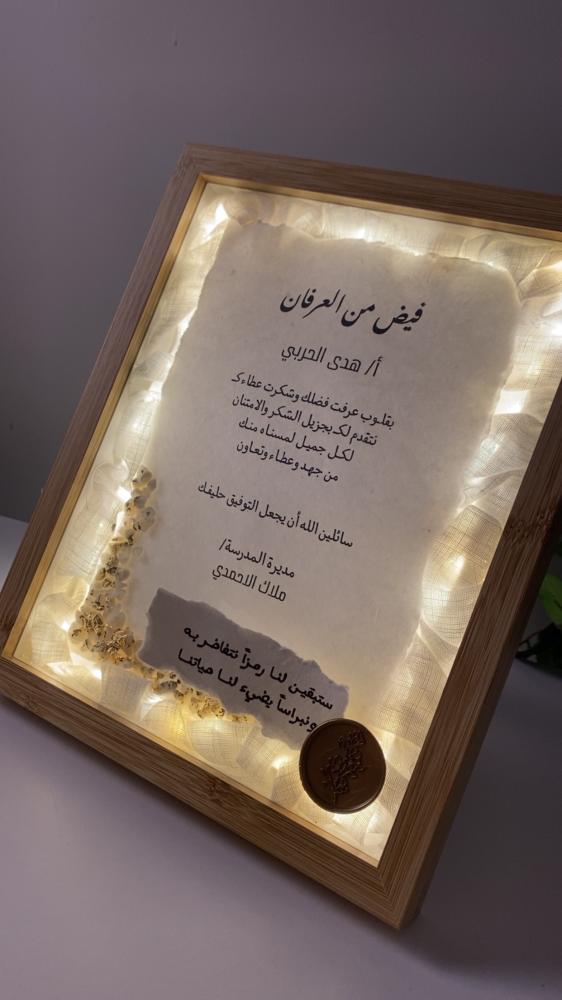 فيض من العرفان
أ/ هدى الحربي
بقلوب عرفت فضلك وشكرت عطاءك
نتقدم لك بجزيل الشكر والامتنان
لكل جميل لمسناه منك
من جهد وعطاء وتعاون
سائلين الله أن يجعل التوفيق حليفك
مديرة المدرسة/
ملاك الاحمدي
ستبقين لنا رمزاً نتفاخر به
ونبراساً يضيء لنا حياتنا